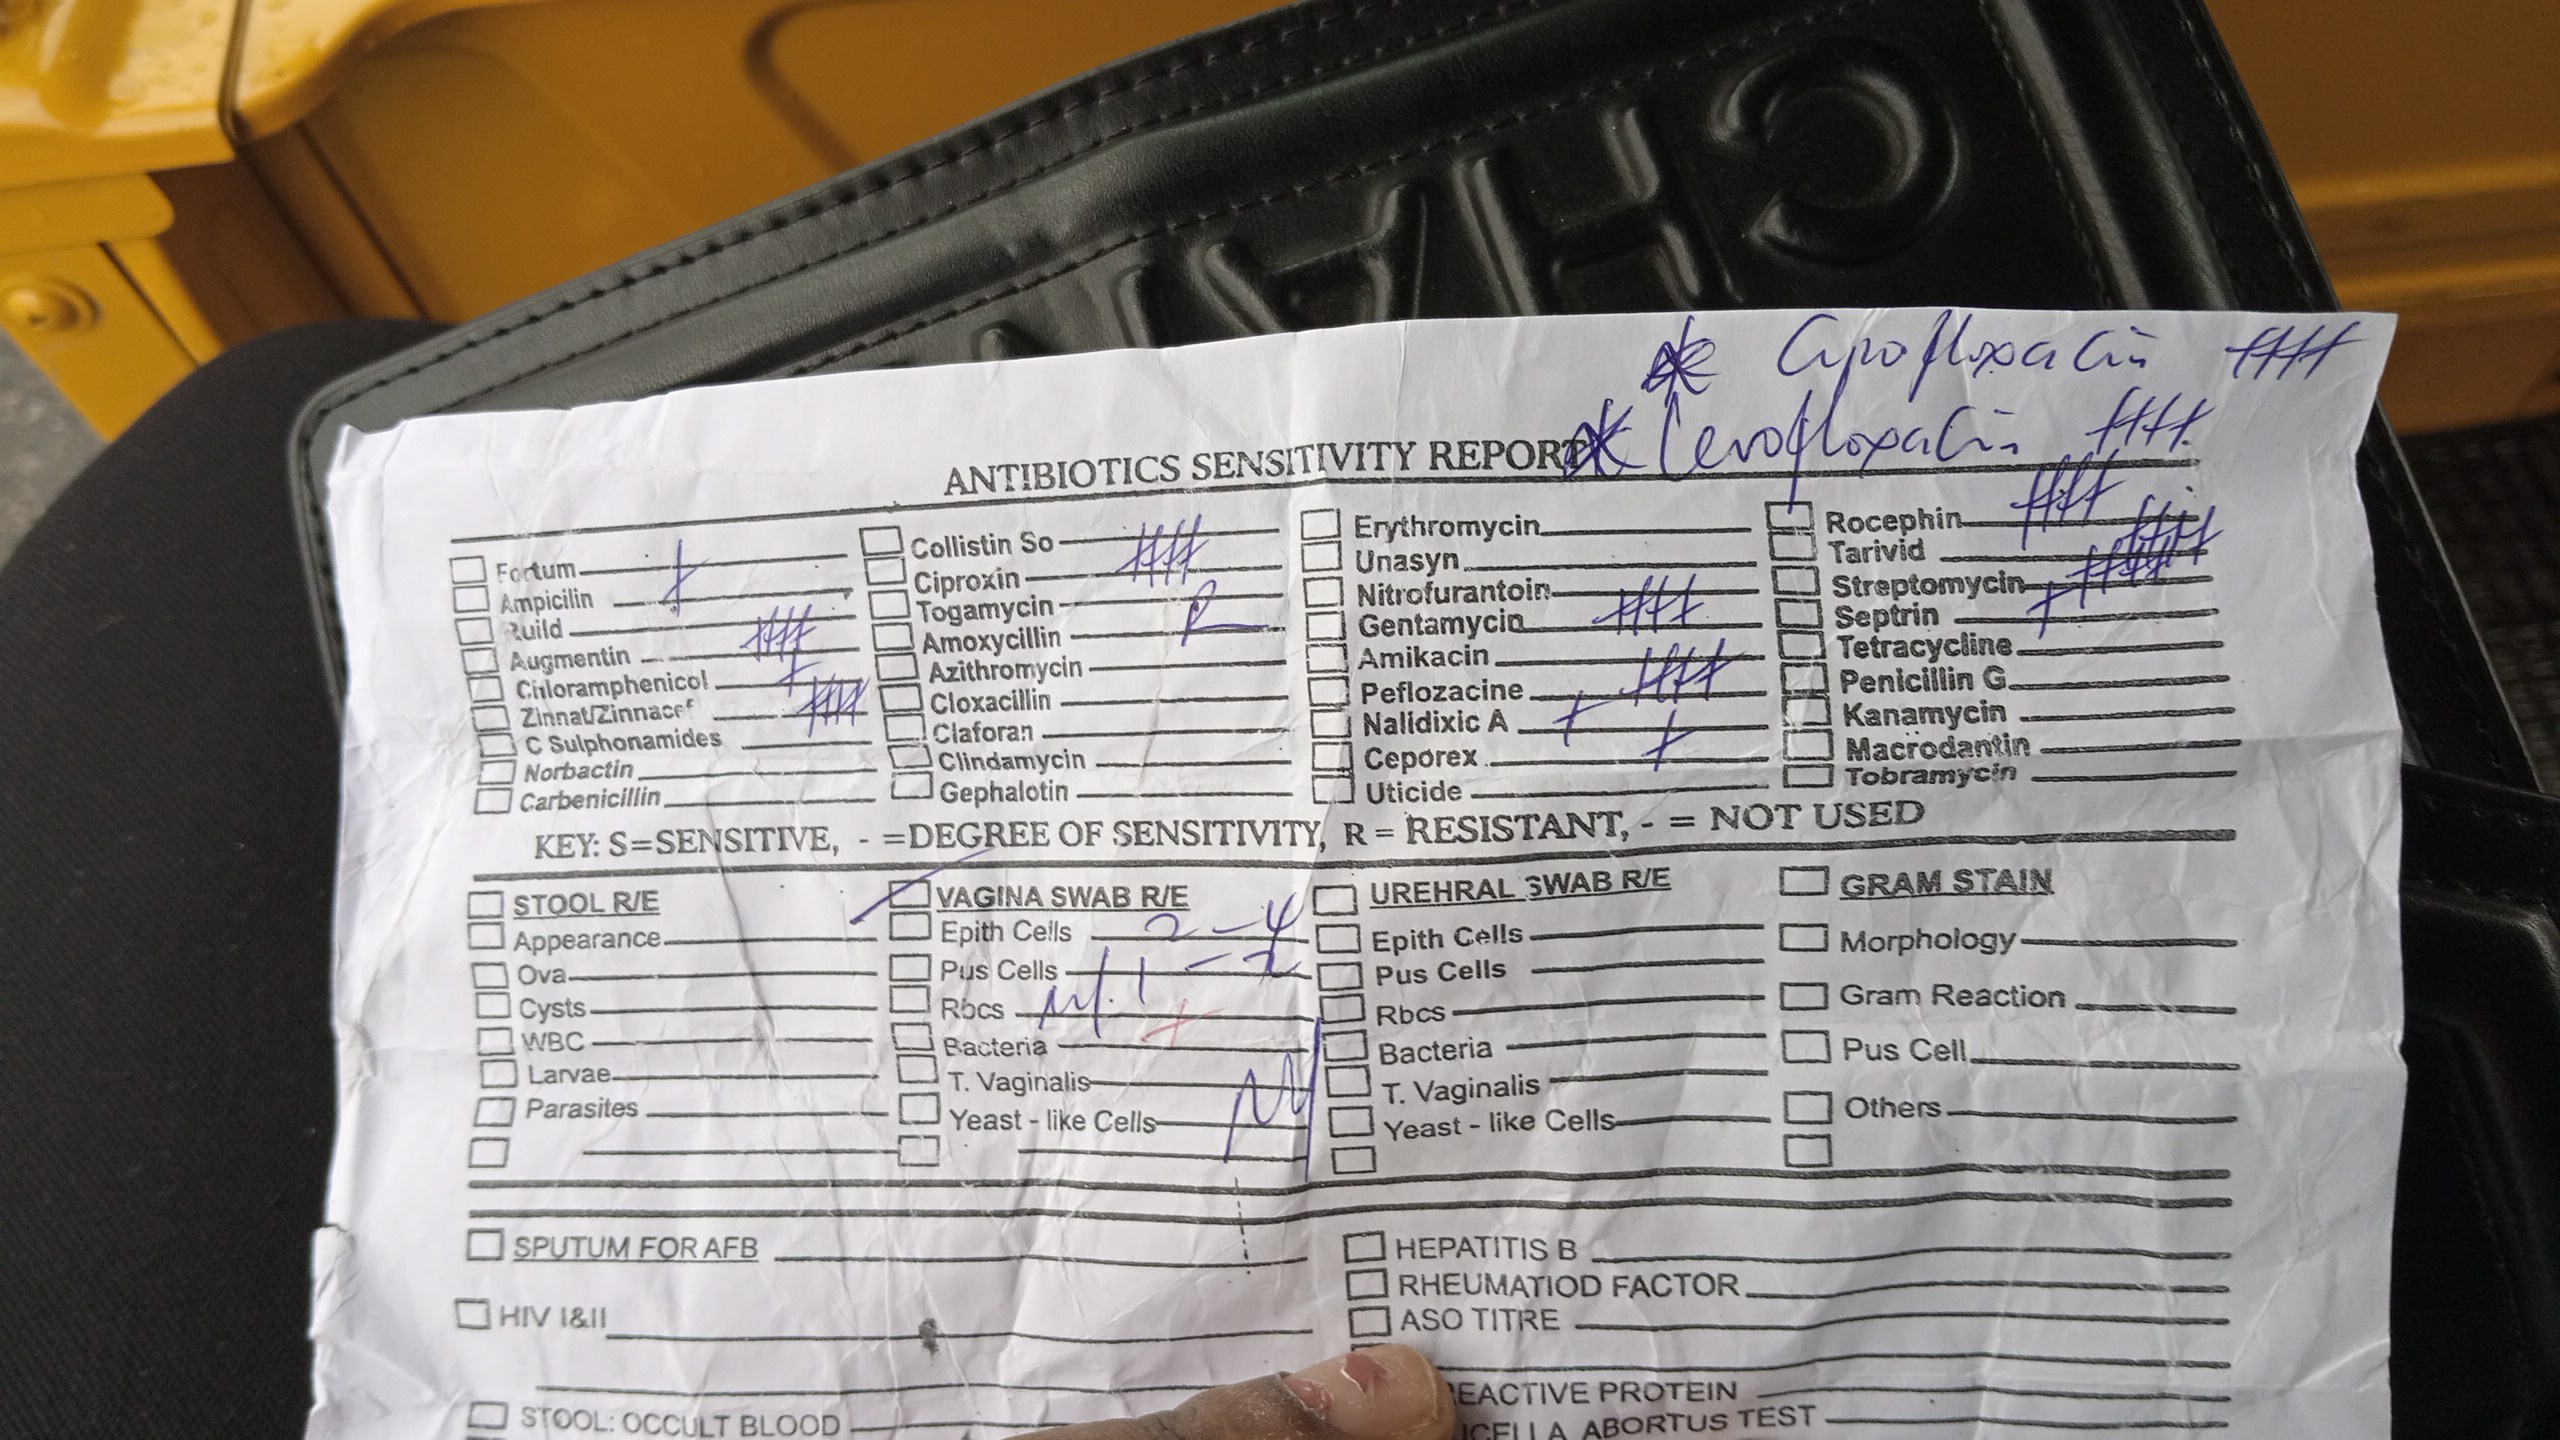 * Ciprofloxacin ++++
* Levofloxacin ++++
ANTIBIOTICS SENSITIVITY REPORT
Fortum
Ampicilin +
Augmentin ++++
Chloramphenicol +
Zinnat/Zinnacef ++++
C Sulphonamides
Norbactin
Carbenicillin
Collistin So
Ciproxin ++++
Togamycin
Amoxycillin R
Azithromycin
Cloxacillin
Claforan
Clindamycin
Gephalotin
Erythromycin
Unasyn
Nitrofurantoin
Gentamycin ++++
Amikacin
Peflozacine ++++
Nalidixic A +
Ceporex +
Uticide
Rocephin ++++
Tarivid ++++
Streptomycin ++++
Septrin +
Tetracycline
Penicillin G
Kanamycin
Macrodantin
Tobramycin
KEY: S=SENSITIVE, - =DEGREE OF SENSITIVITY, R = RESISTANT, - = NOT USED
STOOL R/E
Appearance
Ova
Cysts
WBC
Larvae
Parasites
VAGINA SWAB R/E
Epith Cells 2-4
Pus Cells 1-2
Rbcs Nil
Bacteria +
T. Vaginalis
Yeast - like Cells Nil
UREHRAL SWAB R/E
Epith Cells
Pus Cells
Rbcs
Bacteria
T. Vaginalis
Yeast - like Cells
GRAM STAIN
Morphology
Gram Reaction
Pus Cell
Others
SPUTUM FOR AFB
HIV I&II
STOOL: OCCULT BLOOD
HEPATITIS B
RHEUMATIOD FACTOR
ASO TITRE
REACTIVE PROTEIN
ABORTUS TEST